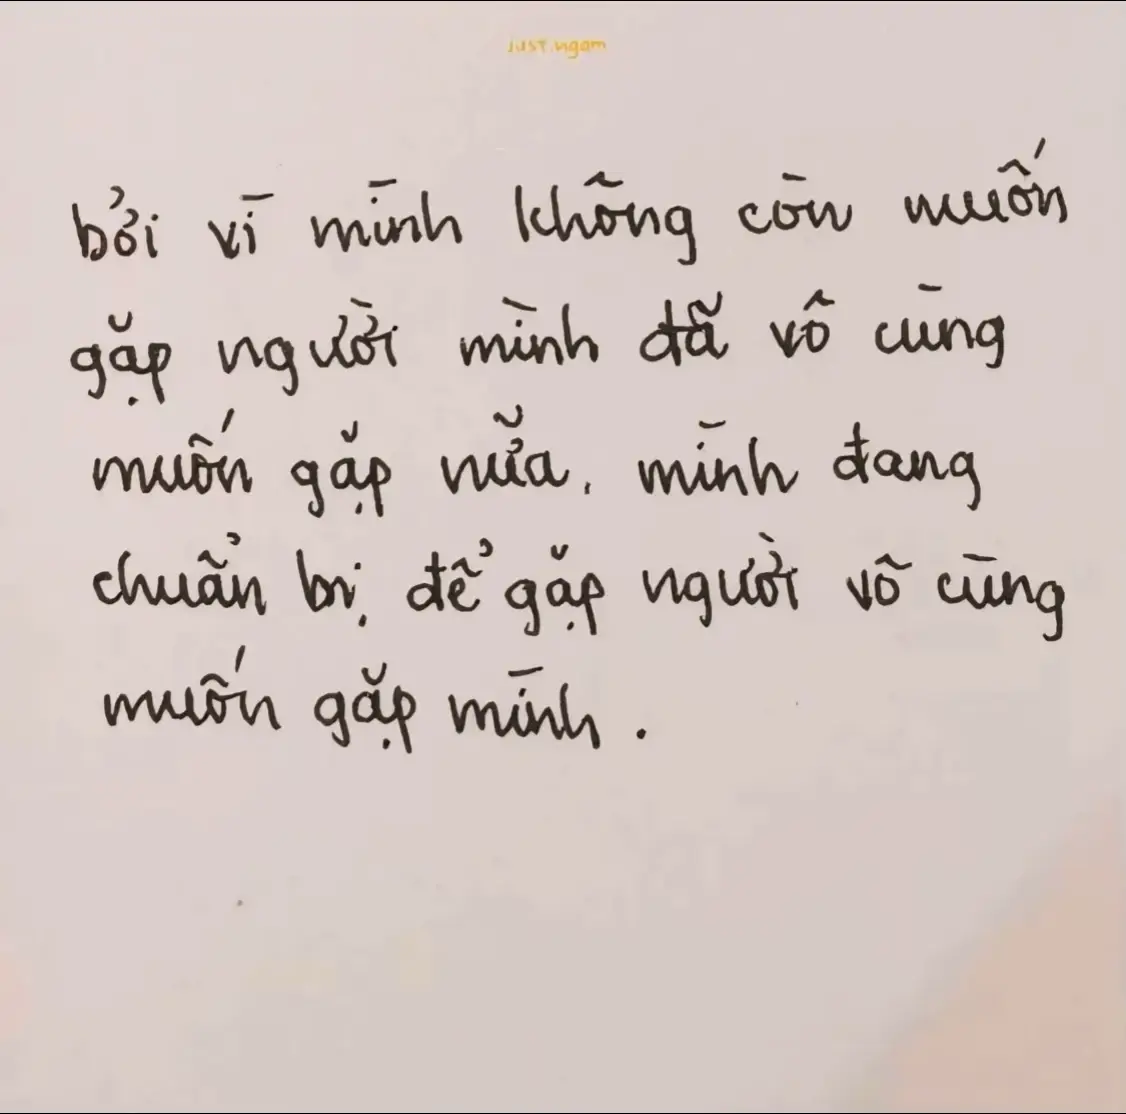 just.ngam
bởi vì mình không còn muốn
gặp người mình đã vô cùng
muốn gặp nữa. mình đang
chuẩn bị để gặp người vô cùng
muốn gặp mình.